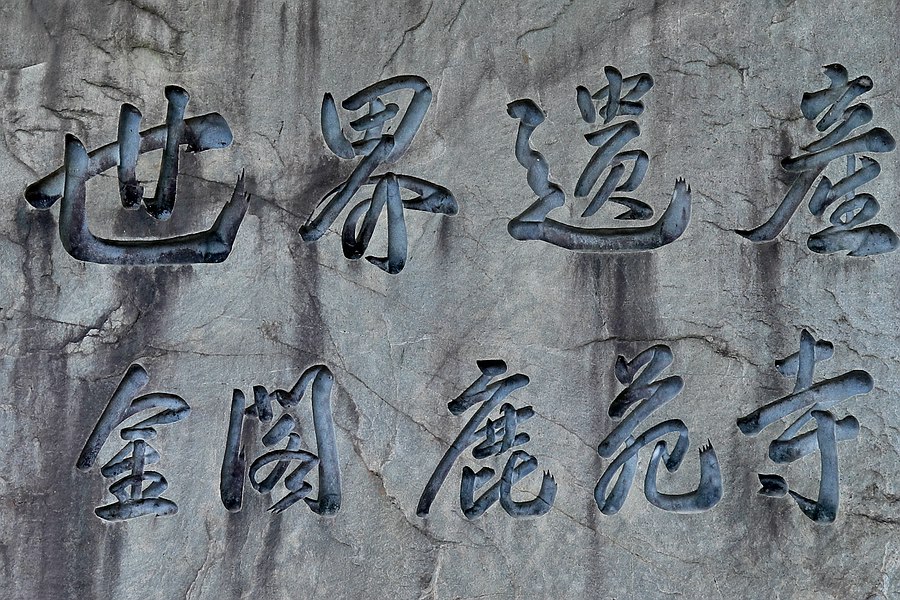 世界遺產
金閣鹿苑寺